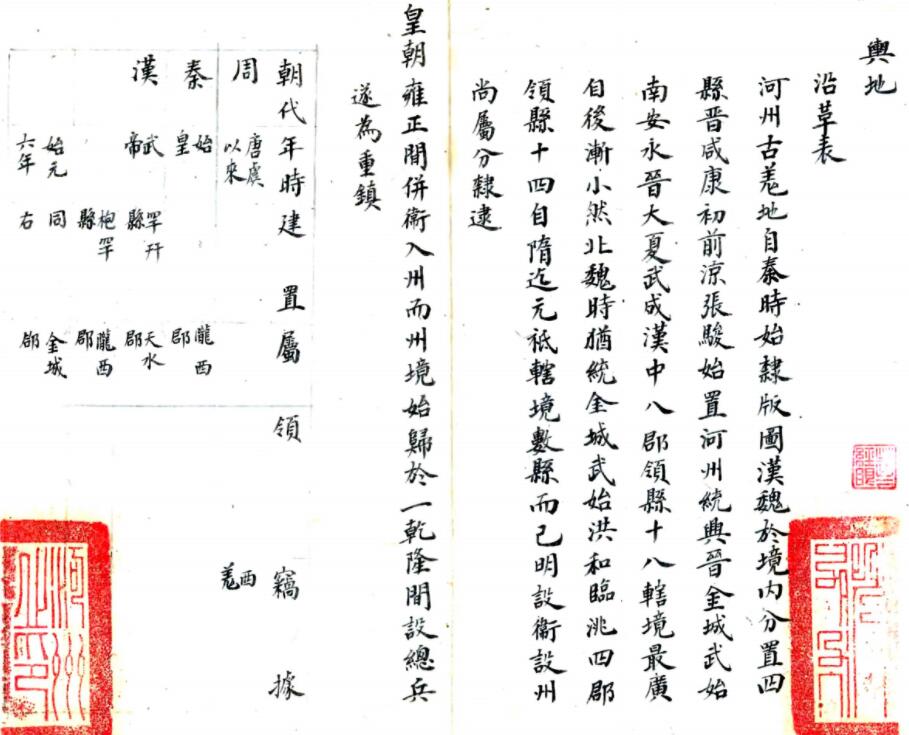 輿地
沿革表
河州古羗地自秦時始隸版圖漢魏於境内分置四
縣晋咸康初前涼張駿始置河州統興晉金城武始
南安永晉大夏武成漢中八郡領縣十八轄境最廣
自後漸小然北魏時猶統金城武始洪和臨洮四郡
領縣十四自隋迄元祗轄境數縣而已明設衞設州
尚屬分隸逮
皇朝雍正間併衞入州而州境始歸於一乾隆間設總兵
遂為重鎮
朝代年時建置屬領竊據
周 唐虞以來 西羗
秦 始皇 隴西郡
漢 武帝 罕幵縣 天水郡
枹罕縣 隴西郡
始元六年 同右 金城郡
河州之印